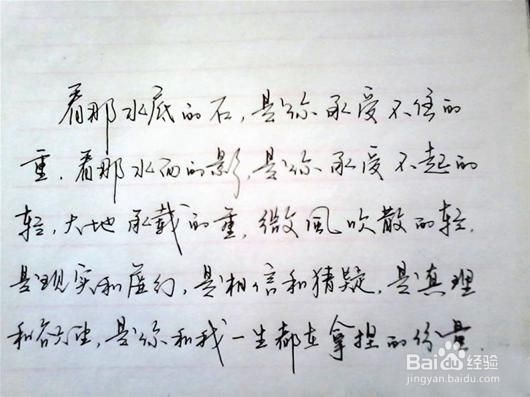 看那水底的石，是你承受不住的
重，看那水面的影，是你承受不起的
轻，大地承载的重，微风吹散的轻，
是现实和虚幻，是相信和猜疑，是真理
和谷注，是你和我一生都在拿捏的份量。
Baidu 经验
jingyan.baidu.com